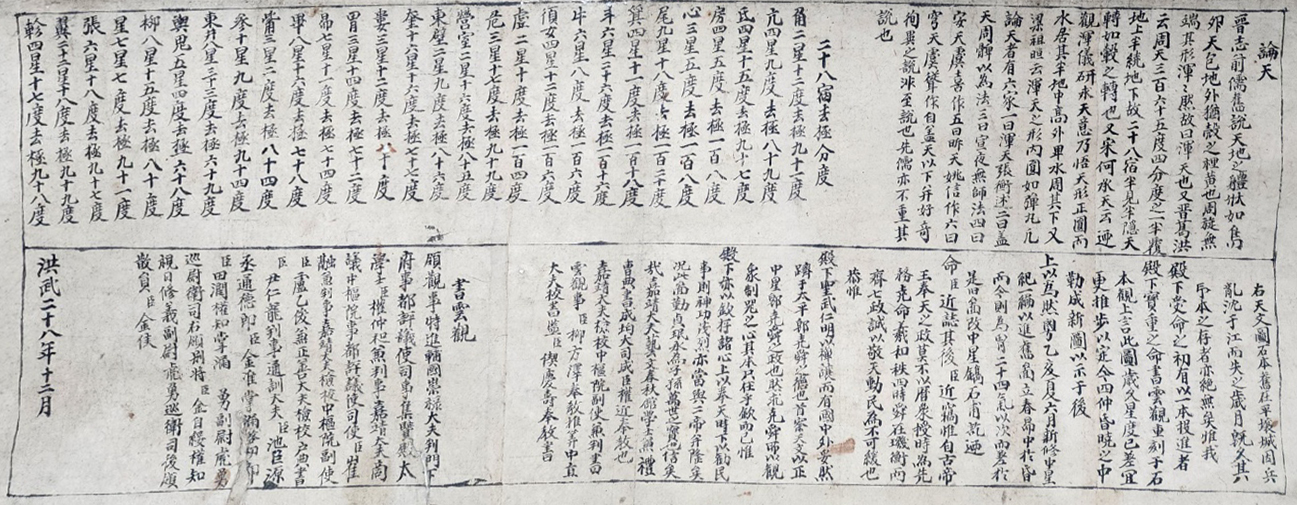 論天
晉志前儒舊說天地之體狀如鳥
卵天包地外猶殼之裡黃也周旋無
端其形渾〻然故曰渾天也又晉葛洪
云周天三百六十五度四分度之一半覆
地上半繞地下故二十八宿半見半隱天
轉如轂之轉也又宋何承天云逈
觀渾儀硏求天意乃悟天形正圓而
水居其半地中高外卑水周其下又
梁祖暅云渾天之形內圓如彈丸凡
論天者有六家一曰渾天張衡述二曰蓋
天周髀以爲法三曰宣夜無師法四曰
安天虞喜作五曰昕天姚信作六曰
穹天虞聳作自蓋天以下幷好奇
徇異之說非至說也先儒亦不重其
說也
二十八宿去極分度
角二星十二度去極九十一度
亢四星九度去極八十九度
氐四星十五度去極九十七度
房四星五度去極一百八度
心三星五度去極一百八度
尾九星十八度去極一百二十度
箕四星十一度去極一百十八度
斗六星二十六度去極一百十六度
牛六星八度去極一百六度
須女四星十二度去極一百六度
虛二星十度去極一百四度
危三星十七度去極九十九度
營室二星十六度去極八十五度
東壁二星九度去極八十六度
奎十六星十六度去極七十七度
婁三星十二度去極八十度
胃三星十四度去極七十二度
昴七星十一度去極七十四度
畢八星十六度去極七十八度
觜三星二度去極八十四度
參十星九度去極九十四度
東井八星三十三度去極六十九度
輿鬼五星四度去極六十八度
柳八星十五度去極八十度
星七星七度去極九十一度
張六星十八度去極九十七度
翼二十二星十八度去極九十九度
軫四星十七度去極九十八度
右天文圖石本舊在平壤城因兵
亂沈于江而失之歲月旣久其
印本之存者亦絶無矣惟我
殿下受命之初有以一本投進者
殿下寶重之命書雲觀重刻于石
本觀上言此圖歲久星度已差宜
更推步以定今四仲昏曉之中
勒成新圖以示于後
上以爲然粤乙亥夏六月新修中星
記一編以進舊啚立春昴中於昏
而今則爲胃二十四氣以次而差於
是因舊啚改中星鐫石甫訖廼
命臣近誌其後臣近竊惟自古帝
王奉天之政莫不以曆象授時爲先
務堯命羲和秩四時舜在璣衡而
齊七政誠以敬天勤民爲不可緩也
恭惟
殿下聖武仁明以禪讓而有國中外晏然
躋于太平卽堯舜之德也首察天文以正
中星卽堯舜之政也然求堯舜所以觀
象制器之心其本只在乎敬而已惟
殿下亦以敬存諸心上以奉天時下以勤民
事則神功茂烈亦當與二帝幷隆矣
況此啚勒貞珉永爲子孫萬世之寶也信矣
哉嘉靖大夫藝文春秋館學士兼禮
曹典書成均大司成臣權近奉敎也
嘉靖大夫檢校中樞院副使兼判書
雲觀事臣柳方澤奉敎推筭中直
大夫校書監臣偰慶壽奉敎書
書雲觀
領觀事特進輔國崇祿大夫判門下
府事都評議使司事臣權
學士臣權仲和兼判事嘉靖大夫商
議中樞院事都評議使司使臣崔
融兼判事嘉靖大夫檢校中樞院副使
臣盧乙俊 正善大夫檢校 書
臣尹仁龍判事通訓大夫臣池臣源
丞通德郞臣金淮
臣田潤權知 副尉
巡尉衛司右領別將臣金自綏權知
視日修義副尉 巡衛司後領
散員臣金侯
洪武二十八年十二月